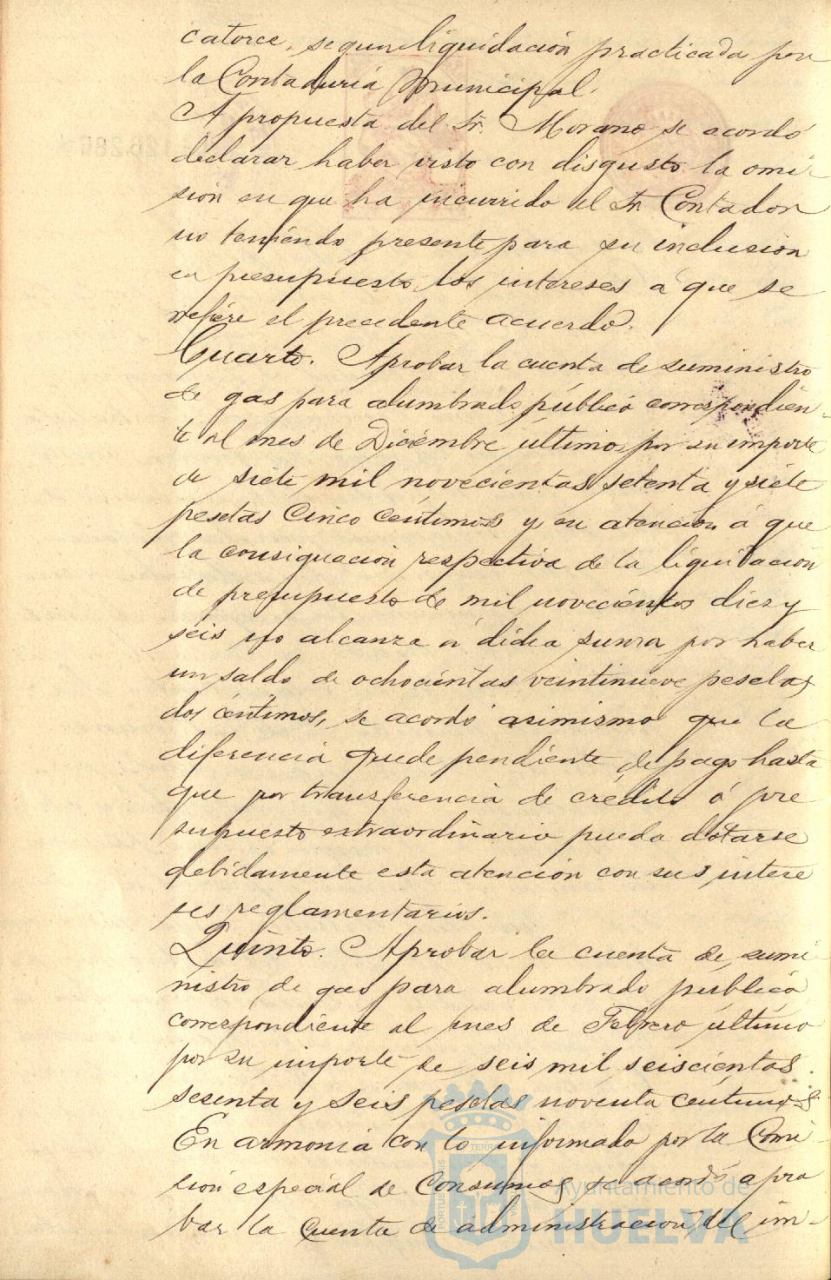 catorce, segun liquidación practicada por
la Contaduría Municipal.
A propuesta del Sr. Morano se acordó
declarar haber visto con disgusto la omi-
sión en que ha incurrido el Sr Contador
no teniendo presente para su inclusion
en presupuesto, los intereses a que se
refiere el precedente acuerdo.
Cuarto. Aprobar la cuenta de suministro
de gas para alumbrado público correspondien-
te al mes de Diciembre último, por su importe
de siete mil novecientas setenta y siete
pesetas cinco céntimos y en atención á que
la consignación respectiva de la liquidación
de presupuesto de mil novecientos diez y
séis no alcanza á dicha suma por haber
un saldo de ochocientas veintinueve pesetas
dos céntimos, se acordó asimismo que la
diferencia quede pendiente de pago hasta
que por transferencia de crédito ó pre
supuesto extraordinario pueda dotarse
debidamente esta atención con sus intere
ses reglamentarios.
Quinto. Aprobar la cuenta de sumi-
nistro de gas para alumbrado público
correspondiente al mes de Febrero último
por su importe de seis mil seiscientas
sesenta y seis pesetas noventa céntimos
En armonía con lo informado por la Comi
sión especial de Consumos, se acordó apro
bar la cuenta de administración del im-
Ayuntamiento de
HUELVA